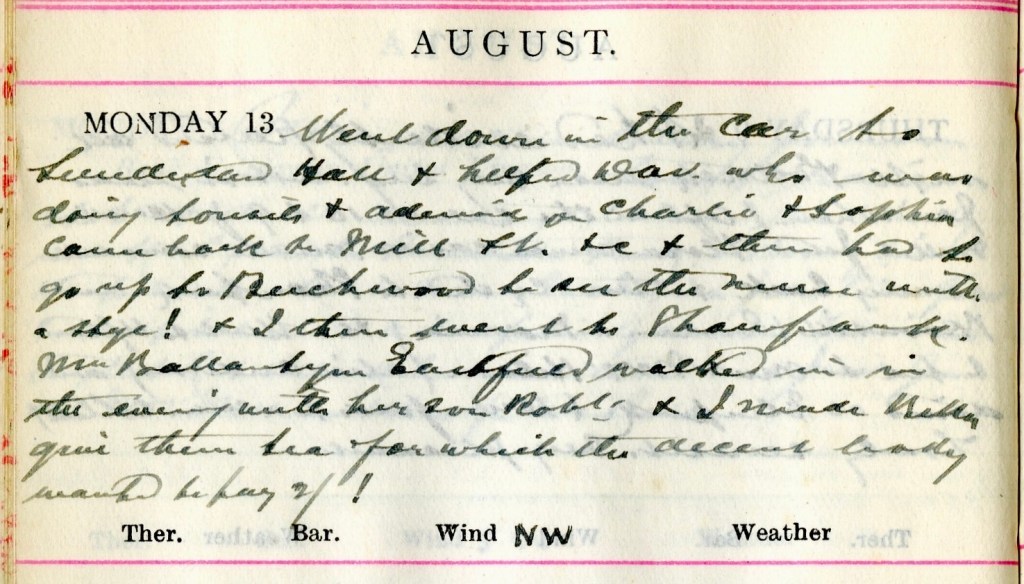 AUGUST.
MONDAY 13 Went down in the car to
Sunderland Hall & helped Dav. who was
doing tonsils & adenoids on Charlie & Sophia
Came back to Mill St. &c & then had to
go up to Beechwood to see the nurse with
a stye! & I then went to Thornfank.
Mrs Ballantyne Eastfield walked in in
the evening with her son Robt & I made
give them tea for which the decent body
wanted to pay 2/ !
Ther. Bar. Wind NW Weather